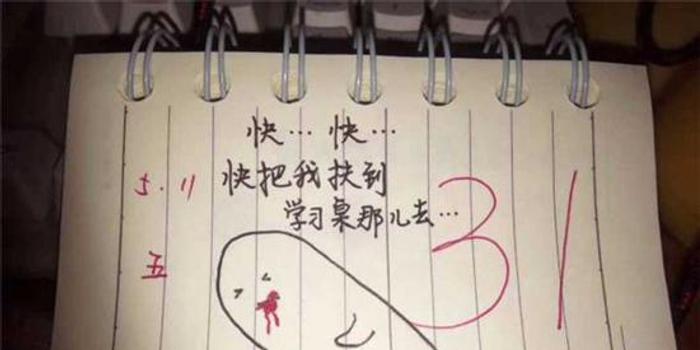 快…快…
5.11 快把我扶到 31
学习桌那儿去…
五